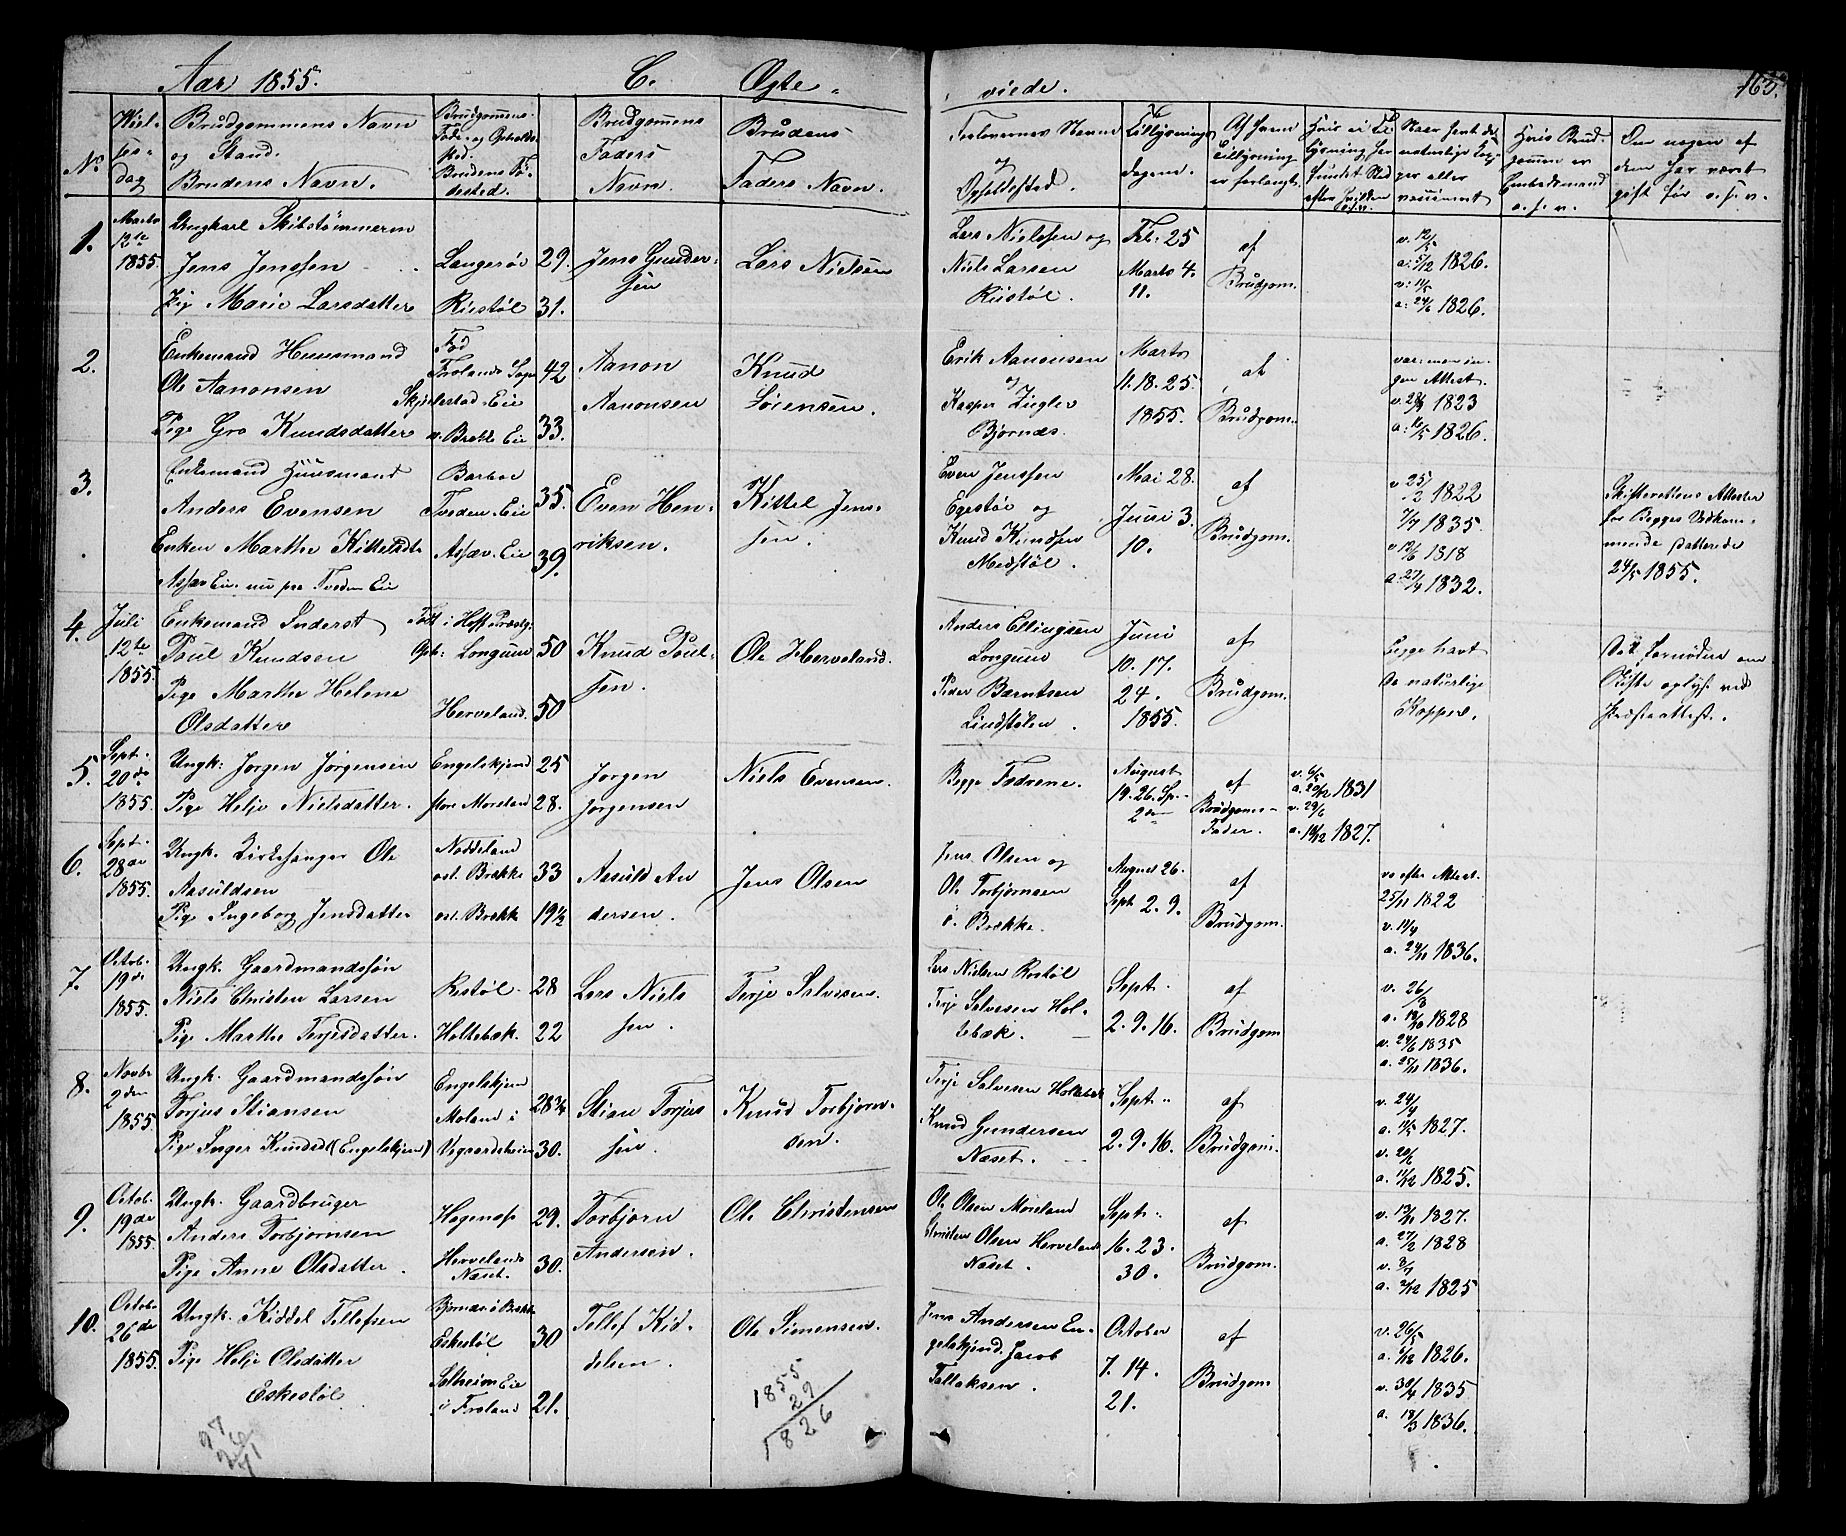 Aar 1855. C. Ægte-
viede. 163.
No
Viel-
ses-
dag
Brudgommens Navn
og Stand.
Brudens Navn.
Brudgommens
Føde- og Opholds-
sted.
Brudens Fø-
dested.
Brudgommens
Faders
Navn.
Brudens
Faders Navn.
Forlovernes Navne
og
Opholdssted.
Tillysnings
dagene.
Af hvem
Tillysning
er forlangt.
1. Marts
12te
1855.
Ungkarl Skibstømmerm
Jens Jenssen
Pig Marie Larsdatter
Langerøe 29.
Riestøl 31.
Jens Gunder-
sen
Lars Nielsen
Lars Nielsen og
Niels Larsen
Riistøl.
Feb: 25
Marts 4.
11.
af
Brudgom.
v. 12/5
a: 5/12 1826.
a: 24/6 1826.
2.
Enkemand Huusmand
Ole Aanonsen
Pige Gro Knudsdatter
Fød
Frolands Sogn 42
Skjelestad-Eie
v. Brekke Eie 33.
Aanon
Aanonsen
Knud
Sørensen.
Erik Aanonsen
og
Kasper Ziegler
Bjørnæs.
Marts
11. 18. 25.
1855.
af
Brudgom.
gen Attest.
1823
1826.
3.
Enkemand Huusmand
Anders Evensen
Enken Marthe Kittelsdtr
Assæv Eie nu paa Tveden Eie
Barboe
Tveden-Eie 35.
Assæv-Eie 39.
Even Hen-
riksen.
Kittel Jens-
sen.
Even Jenssen
Egestøl og
Knud Knudsen
Medstøl.
Mai 28.
Juni 3.
10.
af
Brudgom.
v 25/2 1822
7/7 1835.
1818
1832.
Skifterettens Attester
for Begges Vedkom-
mende datterede
24/5 1855.
4. Juli
12te
1855.
Enkemand Inderst
Poul Knudsen
Pige Marthe Helene
Olsdatter
Født i Hoffs Præstg.
Oph: Longum 50
Herveland. 50
Knud Poul-
sen.
Ole Herveland.
Anders Ellingsen
Longum
Peder Berntsen
Lindstølen.
Juni
10. 17.
24.
1855.
af
Brudgom.
Begge havt
de naturlige
Kopper.
Præsteattest.
5. Sept.
20de
1855.
Ungk: Jørgen Jørgensen
Pige Helje Nielsdatter.
Engelskjend 25
store Moreland 28.
Jørgen
Jørgensen
Niels Evensen.
Begge Fædrene.
August
19. 26. Sp.
2den
af
Brudgoms
Fader.
v. 6/5
a. 20/12 1831
v. 29/6
a. 18/12 1827.
6. Sept.
28de
1855.
Ungk. Kirkesanger Ole
Aasuldsen
Pige Ingeborg Jensdatter
Nøddeland
øst. Brække 33
øst. Brække 19½
Aasuld An
dersen.
Jens Olsen
Jens Olsen og
Ole Torbjørnsen
ø. Brække.
August 26.
Sept. 2. 9.
af
Brudgom.
va efter Attest.
25/11 1822
v. 14/4
a. 24/11 1836.
7. Octob.
19de
1855.
Ungk. Gaardmandssøn
Niels Christen Larsen
Pige Marthe Terjesdatter.
Restøl. 28
Holtebæk. 22
Lars Niels
sen.
Terje Salvesen.
Lars Nielsen Rostøl
Terje Salvesen Hol-
tebæk.
Sept.
2. 9. 16.
af
Brudgom
v. 26/3
a. 19/10 1828
v. 24/6 1835
a. 25/11 1836.
8. Novbr
2den
1855.
Ungk. Gaardmandssøn
Torjus Stiansen
Pige Inger Knudsd (Engelskjen)
Engelskjen
Moland i 28¾
Vegaardsheien 30.
Stian Torjus
sen.
Knud Torbjørn-
sen.
Terje Salvesen Holtebæk
Knud Gundersen
Næset.
Sept.
2. 9. 16.
af
Brudgom.
v. 24/4
a. 11/5 1827.
v. 20/6
a. 11/12 1825.
9. Octob.
19de
1855.
Ungk. Gaardbruger
Anders Torbjørnsen
Pige Anne Olsdatter.
Hagenæs 29.
Hervelands
Næset. 30.
Torbjørn
Andersen.
Ole Christensen
Ole Olsen Moreland
Christen Olsen Hervelands
Næset.
Sept.
16. 23.
30.
af
Brudgom.
v. 13/11 1827.
a. 27/2 1828
a. 2/12 1825
10. Octob.
26de
1855.
Ungk. Kiddel Tellefsen
Pige Helje Olsdatter
Eskestøl
Bjørnæs i Brekke
Eskestøl 30
Solheim Eie
i Froland 21.
Tellef Kid-
delsen.
Ole Simensen.
1855
29
1826
Jens Andersen En-
gelskjend. Jacob
Tellaksen.
October
7. 14.
21.
af
Brudgom
v. 26/5
a. 6/12 1826.
v. 30/9 1835
a. 18/3 1836.